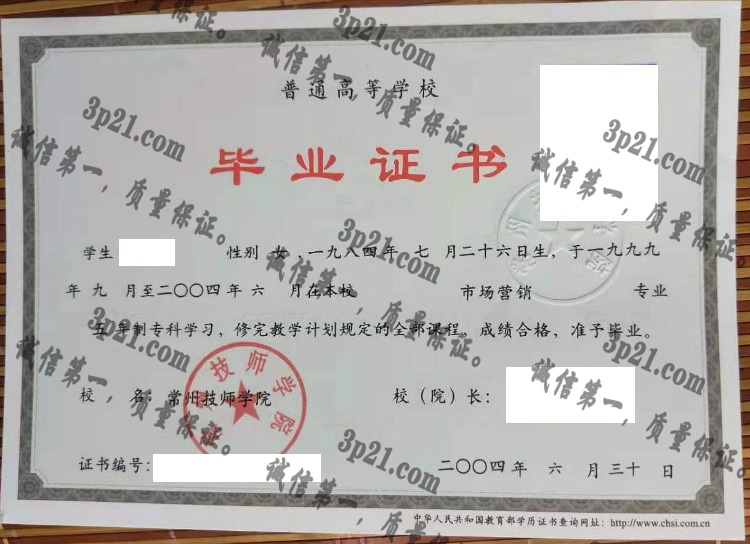 普通高等学校
毕业证书
学生 性别 女 ,一九八四年 七 月二十六日生，于一九九九
年 九 月至二〇〇四年 六 月在本校 市场营销 专业
五年制专科学习，修完教学计划规定的全部课程，成绩合格，准予毕业。
技师学院
校 名：常州技师学院 校（院）长：
证书编号： 二〇〇四年 六 月 三十 日
中华人民共和国教育部学历证书查询网址：http://www.chsi.com.cn
3p21.com
诚信第一，质量保证。
3p21.com
诚信第一，质量保证。
3p21.com
诚信第一，质量保证。
3p21.com
诚信第一，质量保证。
3p21.com
诚信第一，质量保证。
3p21.com
诚信第一，质量保证。
3p21.com
诚信第一，质量保证。
3p21.com
诚信第一，质量保证。